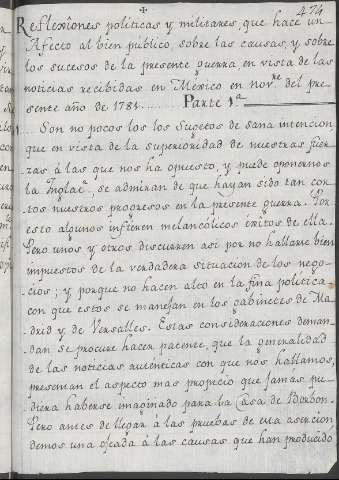 ✝
474
Reflexiones politicas y militares, que hace un
Afecto al bien público, sobre las causas, y sobre
los sucesos de la presente guerra en vista de las
noticias recibidas en México en nov.re del pre-
sente año de 1781........ Parte 1.a
1... Son no pocos los Sugetos de sana intencion,
que en vista de la superioridad de nuestras fuer-
zas á las que nos ha opuesto, y puede oponernos
la Yglat.a, se admiran de que hayan sido tan cor-
tos nuestros progresos en la presente guerra. Por
esto algunos infieren melancólicos éxitos de ella.
Pero unos y otros discurren asi por no hallarse bien
impuestos de la verdadera situacion de los nego-
cios; y porque no hacen alto en la fina politica
con que estos se manejan en los gabinetes de Ma-
drid y de Versalles. Estas consideraciones deman-
dan se procure hacer patente, que la generalidad
de las noticias autenticas con que nos hallamos,
presentan el aspecto mas propicio que jamas pu-
diera haberse imaginado para la Casa de Borbon.
Pero antes de llegar á las pruebas de esta asercion
demos una ojeada á las causas que han producido